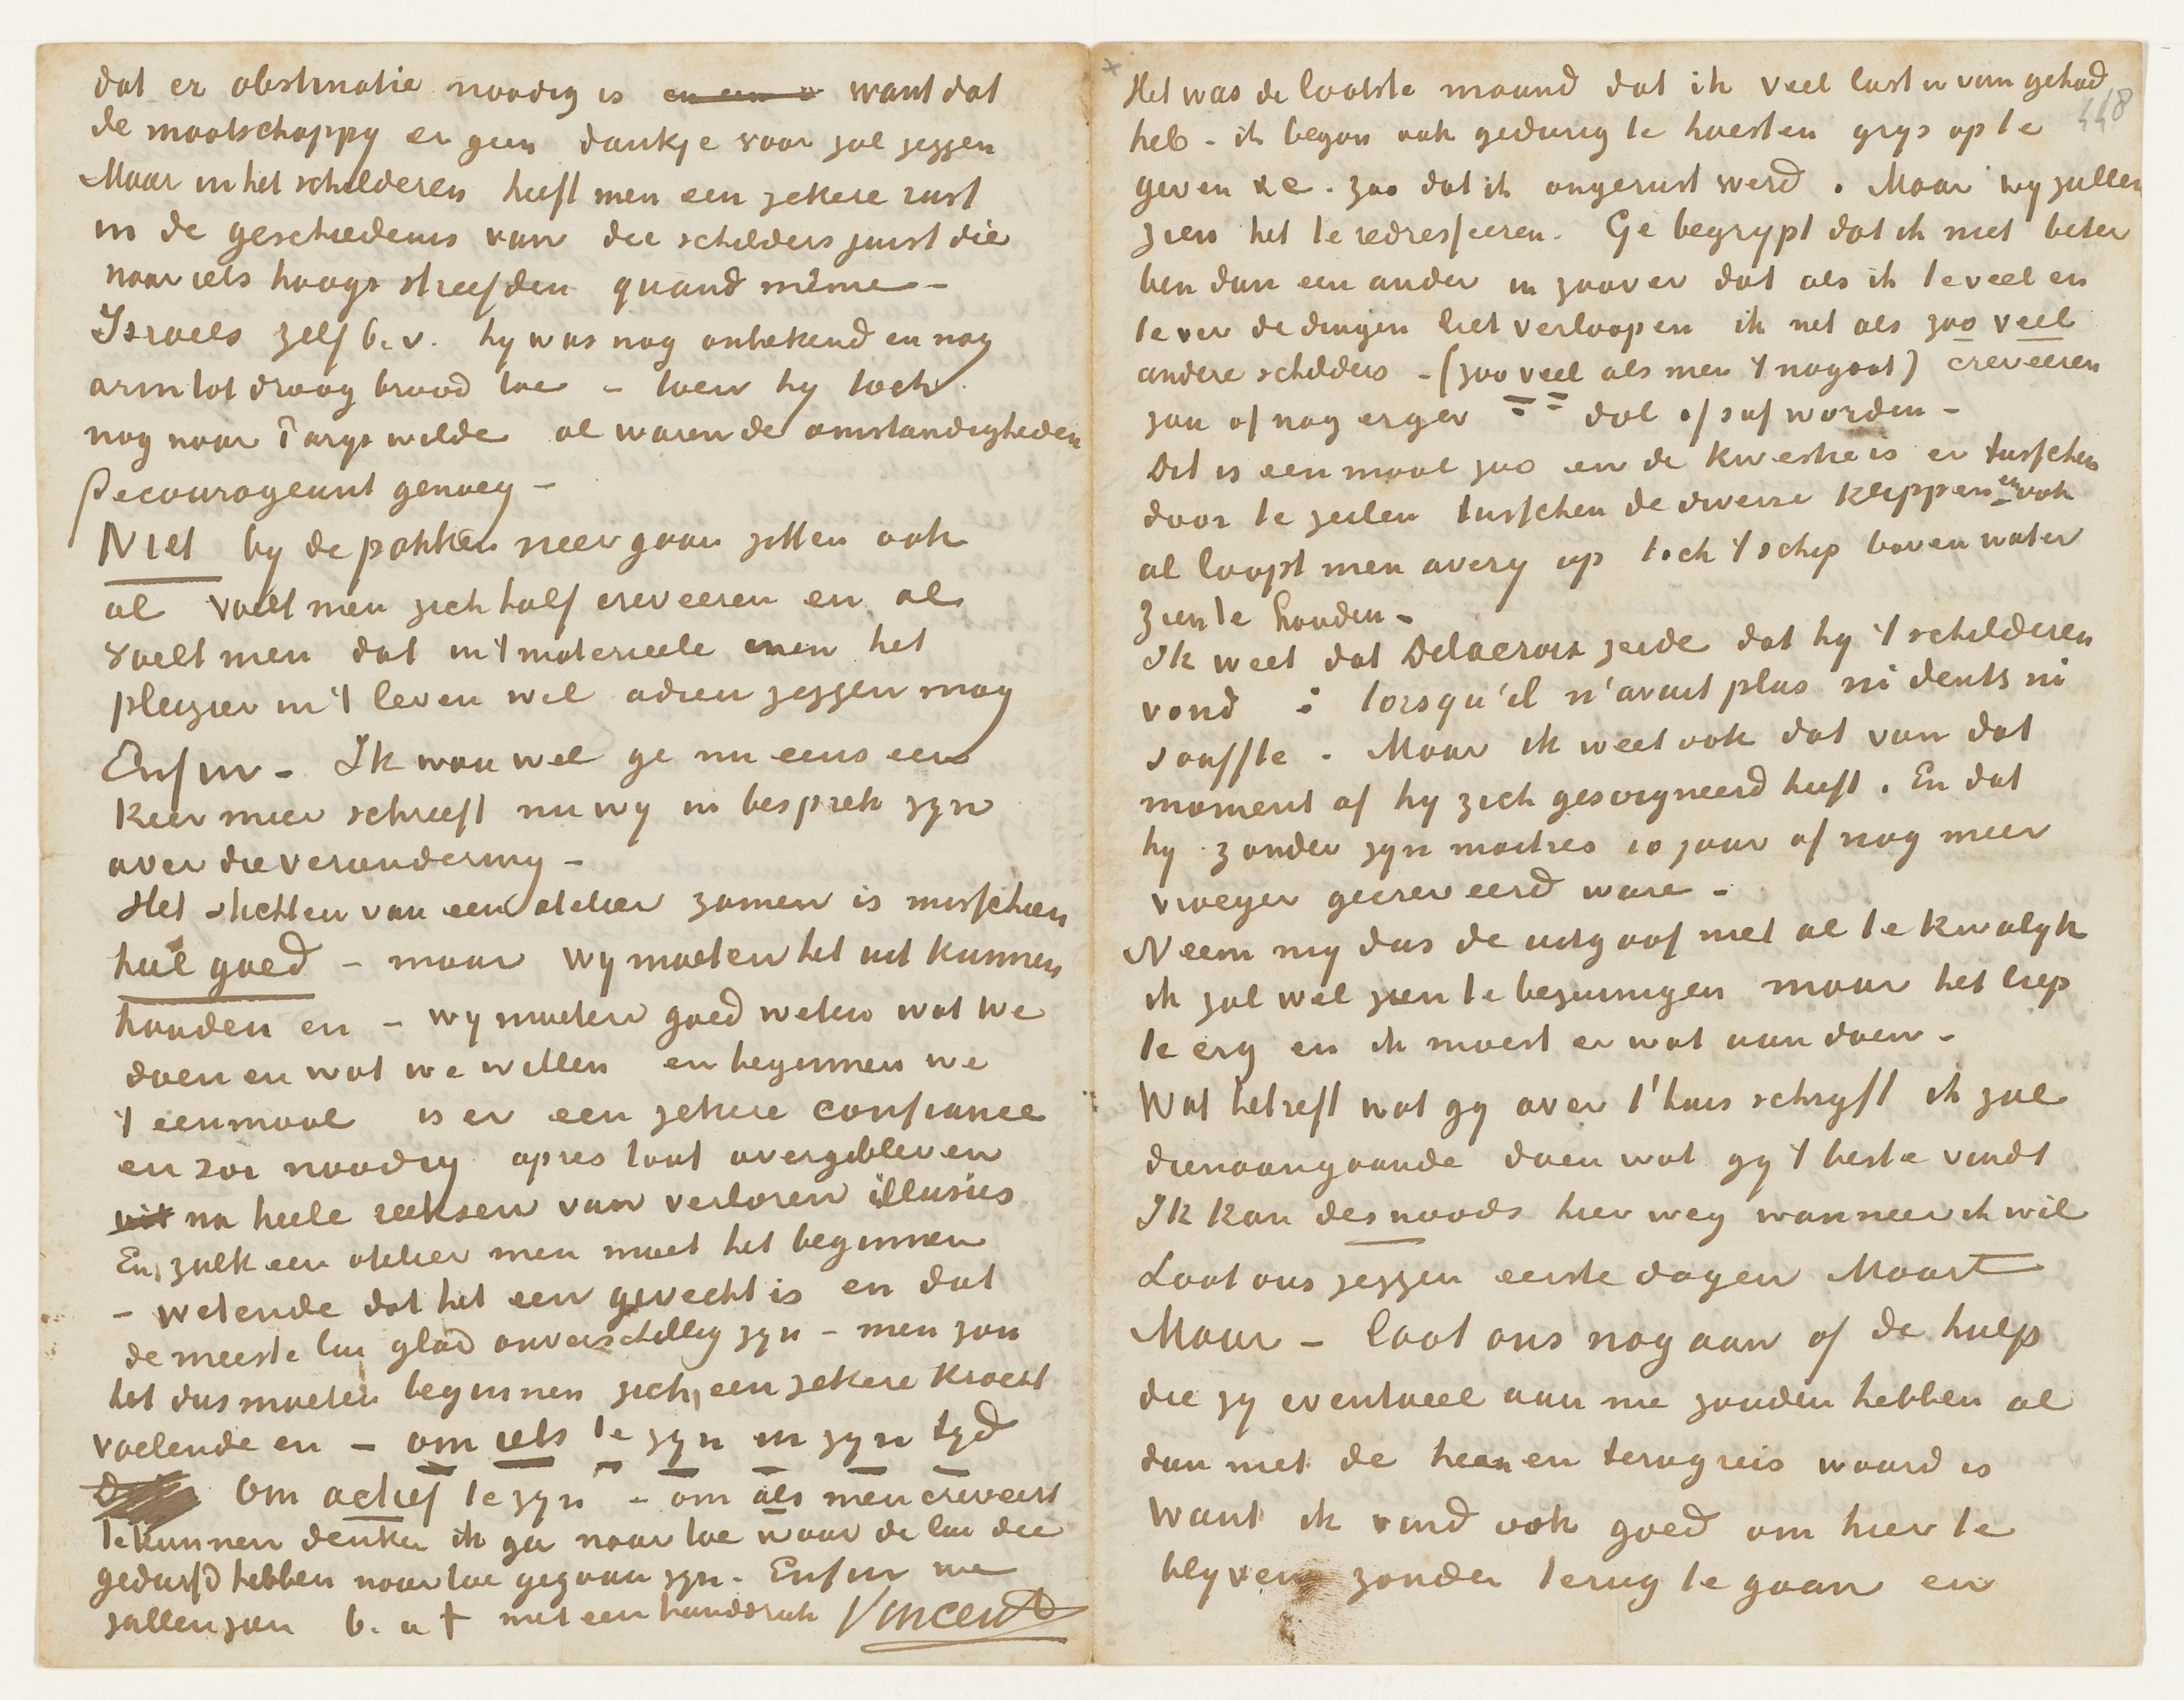 dat er obstinatie noodig is en een v want dat
de maatschappy er geen dankje voor zal zeggen
Maar in het schilderen heeft men een zekere rust
in de geschiedenis van die schilders juist die
naar iets hoogs streefden quand même –
Israels zelf b.v. hy was nog onbekend en nog
arm tot droog brood toe – toen hy toch
nog naar Parys wilde al waren de omstandigheden
decourageant genoeg –
Niet by de pakken neer gaan zitten ook
al voelt men zich half creveeren en al
voelt men dat in 't materieele men het
pleizier in 't leven wel adieu zeggen mag
Enfin – Ik wou wel ge nu eens een
keer meer schreeft nu wy in besprek zyn
over die verandering –
Het stichten van een atelier zamen is misschien
heel goed – maar wy moeten het uit kunnen
houden en – wy moeten goed weten wat we
doen en wat we willen en beginnen we
't eenmaal is er een zekere confiance
en soi noodig apres tout overgebleven
uit na heele reeksen van verloren illusies
En zulk een atelier men moet het beginnen
– wetende dat het een gevecht is en dat
de meeste lui glad onverschillig zyn – men zou
het dus moeten beginnen zich een zekere kracht
voelende en – om iets te zyn in zyn tyd
Om actief te zyn – om als men creveert
te kunnen denken ik ga naar toe waar de lui die
gedurfd hebben naar toe gegaan zyn. Enfin we
zullen zien b. à t met een handdruk Vincent
Het was de laatste maand dat ik veel last er van gehad
448
heb – ik begon ook gedurig te hoesten grys op te
geven &c. zoo dat ik ongerust werd. Maar wy zullen
zien het te redresseeren. Ge begrypt dat ik niet beter
ben dan een ander in zoover dat als ik te veel en
te ver de dingen liet verloopen ik net als zoo veel
andere schilders – (zoo veel als men 't nagaat) creveeren
zou of nog erger – dol of suf worden –
Dit is eenmaal zoo en de kwestie is er tusschen
door te zeilen tusschen de diverse klippen en ook
al loopt men avery op toch 't schip boven water
zien te houden –
Ik weet dat Delacroix zeide dat hy 't schilderen
vond : lorsqu'il n'avait plus ni dents ni
souffle. Maar ik weet ook dat van dat
moment af hy zich gesoigneerd heeft. En dat
hy zonder zyn maitres 10 jaar of nog meer
vroeger gecreveerd ware –
Neem my dus de uitgaaf niet al te kwalyk
ik zal wel zien te bezuinigen maar het liep
te erg en ik moest er wat aan doen –
Wat betreft wat gy over t'huis schryft ik zal
dienaangaande doen wat gy 't beste vindt
Ik kan desnoods hier weg wanneer ik wil
Laat ons zeggen eerste dagen Maart
Maar – laat ons nog aan of de hulp
die zy eventueel aan me zouden hebben al
dan niet de heen en terugreis waard is
Want ik vind ook goed om hier te
blyven zonder terug te gaan en